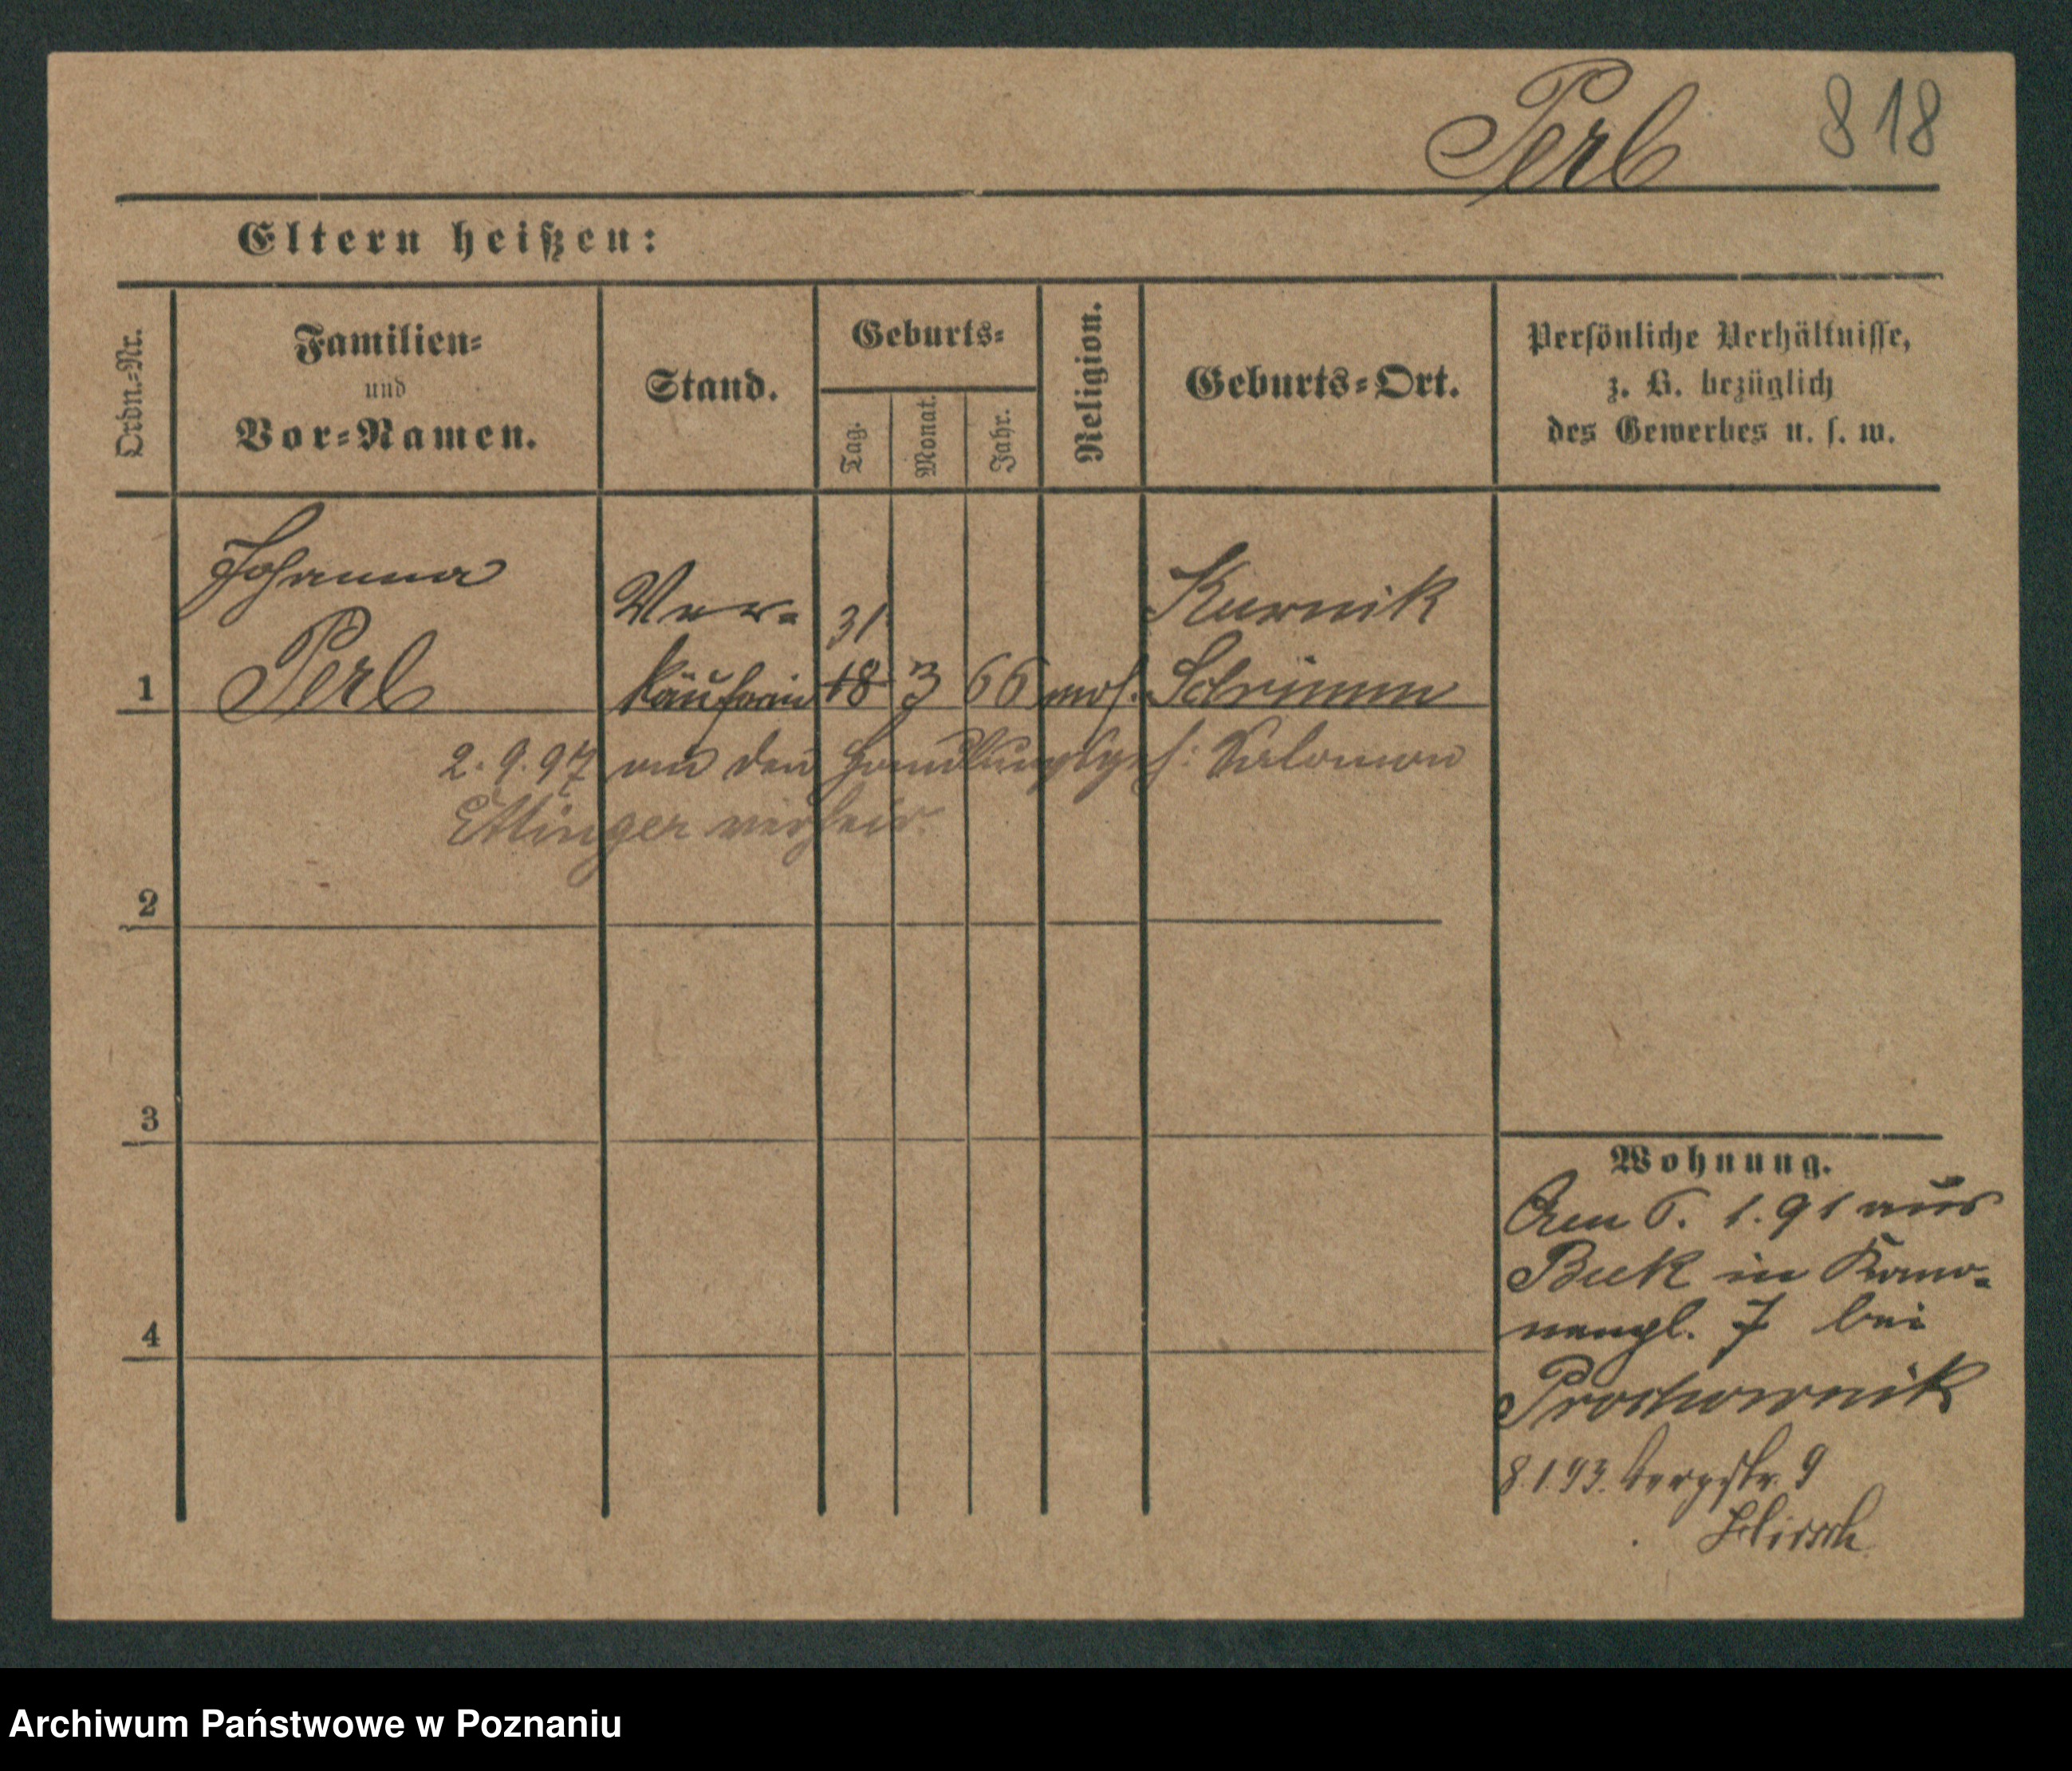 Perl 818
Eltern heißen:
Ordn.-Nr.
Familien-
und
Vor-Namen.
Stand.
Geburts-
Tag.
Monat.
Jahr.
Religion.
Geburts-Ort.
Persönliche Verhältnisse,
z. B. bezüglich
des Gewerbes u. s. w.
Johanna
Perl
Ver-
käuferin
31
18 3 66 mos.
Kurnik
Schrimm
1
2. 9. 97 an den Handlungsgeh: Salomon
Ettinger verheir.
2
3
4
Wohnung.
Am 6. 1. 91 aus
Buk in Kano-
nenpl. 7 bei
Prochownik
8.1.93. Bergstr. 9
Hirsch
Archiwum Państwowe w Poznaniu